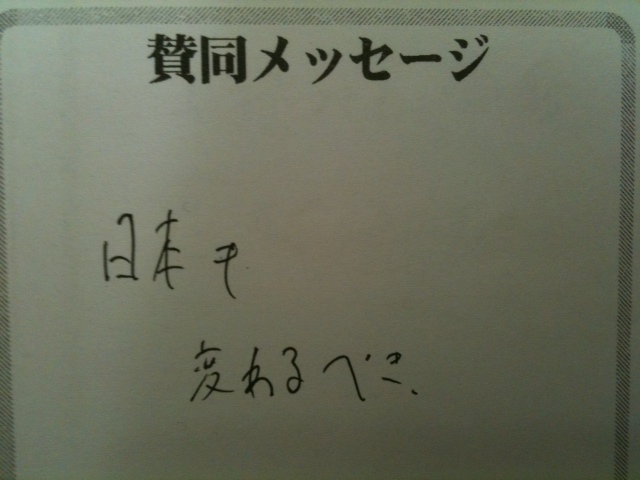 賛同メッセージ
日本も
変わるべき、